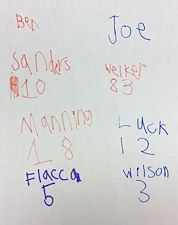 Ben
Joe
Sanders
10
Welker
83
Manning
18
Luck
12
Flacca
5
Wilson
3